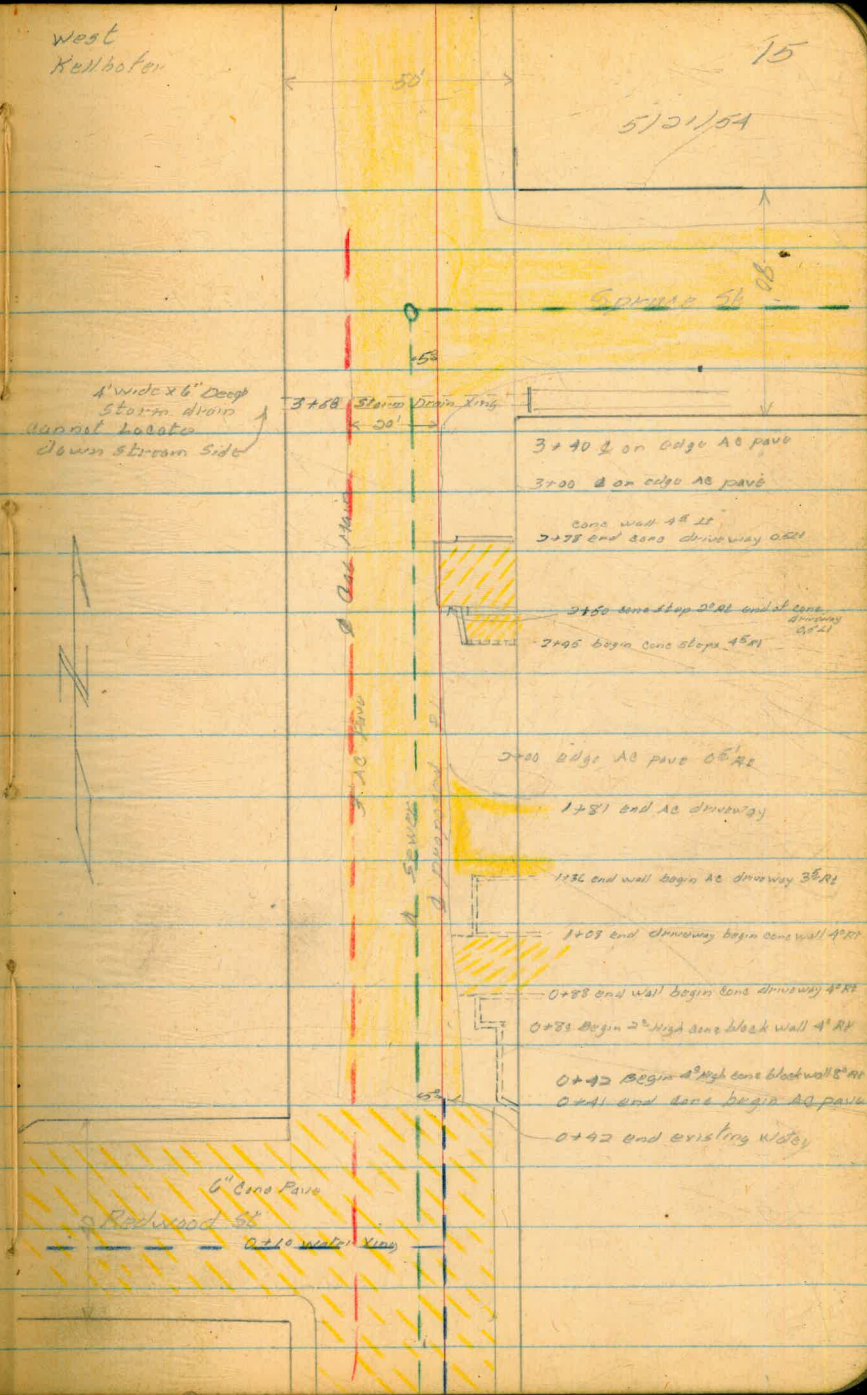 West
Kellhofer
15
50'
5/21/54
80
Spruce St
5⁰
4' wide x 6" Deep
Storm drain
Cannot Locate
down stream Side
3+68 Storm Drain Xing
20'
3+40 ℄ on edge AC pave
3+00 ℄ on edge AC pave
conc wall 4⁵ Lt
2+78 end conc driveway 0.5 Lt
2+50 conc step 2⁰ Rt end of conc
driveway
0.5 Lt
2+45 begin conc steps 4⁵ Rt
℄ Gas Main
N
2+00 edge AC pave 0⁵' Rt
3" AC Pave
℄ sewer
℄ proposed
1+81 end AC driveway
1+36 end wall begin AC driveway 3⁵ Rt
1+03 end driveway begin conc wall 4⁰ Rt
0+88 end wall begin conc driveway 4⁰ Rt
0+83 Begin 2⁰ High conc block wall 4' Rt
0+42 Begin 4⁰ High conc block wall 8⁰ Rt
0+41 end conc begin AC pave
0+42 end existing water
5⁰
6" Conc Pave
Redwood St
0+10 water Xing